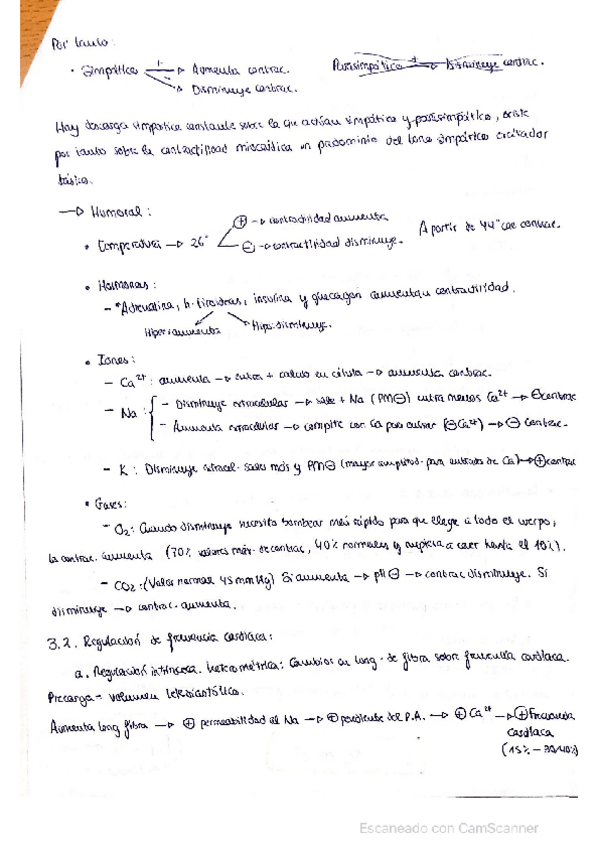 Por tanto:
· Simpático + → Aumenta contrac. Parasimpático + → Disminuye contrac.
- → Disminuye contrac.
Hay descarga simpática constante sobre la que actúan simpático y parasimpático, existe
por tanto sobre la contractilidad miocárdica un predominio del tono simpático excitador
básico.
→ Humoral:
⊕ → contractilidad aumenta
• Temperatura → 26° A partir de 44° cae contrac.
⊖ → contractilidad disminuye.
• Hormonas:
- *Adrenalina, h. tiroideas, insulina y glucagón aumentan contractilidad.
Hiper: aumenta Hipo: disminuye.
• Iones:
- Ca²⁺: aumenta → entra + calcio en célula → aumenta contrac.
- Na: { - Disminuye extracelular → sale + Na (PM⊖) entra menos Ca²⁺ → ⊖ contrac
- Aumenta extracelular → compite con Ca para entrar (⊖Ca²⁺) → ⊖ Contrac.
- K: Disminuye extracel. sale más y PM⊖ (mayor amplitud para entrada de Ca) → ⊕ contrac
• Gases:
- O₂: Cuando disminuye necesita bombear más rápido para que llegue a todo el cuerpo,
la contrac. aumenta (70% valores máx. de contrac, 40% normales y empieza a caer hasta el 10%).
- CO₂: (Valor normal 45 mmHg) Si aumenta → pH⊖ → contrac disminuye. Si
disminuye → contrac. aumenta.
3.2. Regulación de frecuencia cardíaca:
a. Regulación intrínseca. heterométrica: Cambios en long. de fibra sobre frecuencia cardíaca.
Precarga = volumen telediastólico.
Aumenta long fibra → ⊕ permeabilidad al Na → ⊕ pendiente del P.A. → ⊕ Ca²⁺ → ⊕ Frecuencia
Cardíaca
(15% - 30/40%)
Escaneado con CamScanner